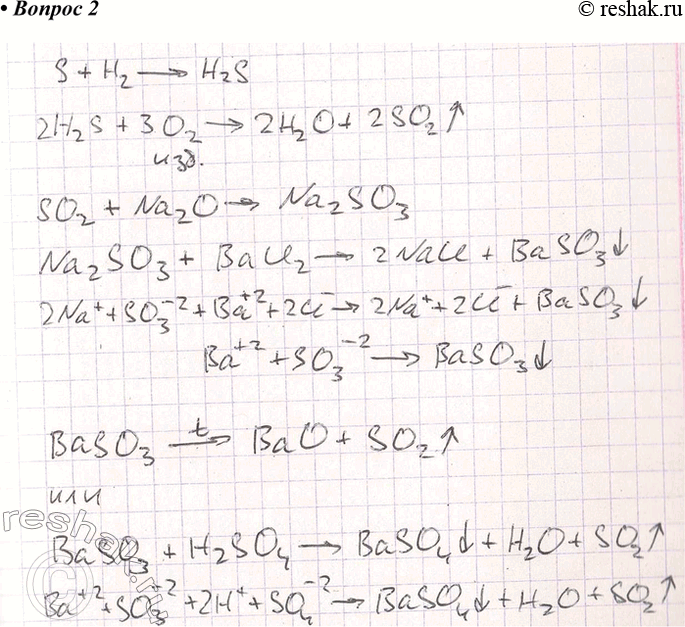 • Вопрос 2 © reshak.ru
S + H₂ → H₂S
2H₂S + 3O₂ → 2H₂O + 2SO₂↑
изб.
SO₂ + Na₂O → Na₂SO₃
Na₂SO₃ + BaCl₂ → 2NaCl + BaSO₃↓
2Na⁺ + SO₃⁻² + Ba⁺² + 2Cl⁻ → 2Na⁺ + 2Cl⁻ + BaSO₃↓
Ba⁺² + SO₃⁻² → BaSO₃↓
BaSO₃ →ᵗ BaO + SO₂↑
или
BaSO₃ + H₂SO₄ → BaSO₄↓ + H₂O + SO₂↑
Ba⁺² + SO₃⁺² + 2H⁺ + SO₄⁻² → BaSO₄↓ + H₂O + SO₂↑